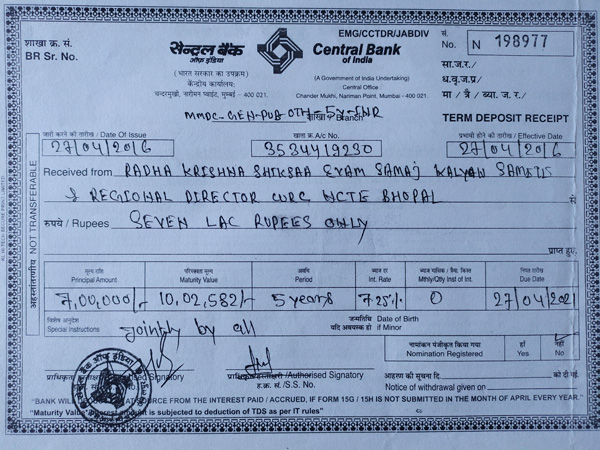 EMG/CCTDR/JABDIV
शाखा क्र. सं.
BR Sr. No.
सेन्ट्रल बैंक
ऑफ इंडिया
(भारत सरकार का उपक्रम)
केन्द्रीय कार्यालय:
चन्द्रमुखी, नारीमन प्वाइंट, मुम्बई - 400 021.
Central Bank
of India
(A Government of India Undertaking)
Central Office
Chander Mukhi, Nariman Point, Mumbai - 400 021.
सं.
No. N 198977
सा.ज.र./
ध.वृ.ज.प्र/
मा / त्रै / ब्या. ज. र./
MMDC-GEN-PUB-OTH-5Y-INR
शाखा/Branch
TERM DEPOSIT RECEIPT
जारी करने की तारीख / Date Of Issue
खाता क्र. A/c No.
प्रभावी होने की तारीख / Effective Date
27/04/2016
3534419230
27/04/2016
Received from RADHA KRISHNA SHIKSAA EVAM SAMAJ KALYAN
& REGIONAL DIRECTOR WRC NCTE BHOPAL से
रुपये / Rupees SEVEN LAC RUPEES ONLY
प्राप्त हुए.
अहस्तांतरणीय NOT TRANSFERABLE
मूल राशि
Principal Amount
परिपक्वता मूल्य
Maturity Value
अवधि
Period
ब्याज दर
Int. Rate
Mthly/Qtly Inst of Int.
नियत तारीख
Due Date
7,00,000/-
10,02,582/-
5 years
7.25%
0
27/04/2021
विशेष अनुदेश
Special Instructions
Jointly by all
जन्मतिथि Date of Birth
यदि अवयस्क हो if Minor
नामांकन पंजीकृत किया गया
Nomination Registered
हाँ
Yes
नहीं
No
प्राधिकृत हस्ताक्षरकर्ता /Authorised Signatory
ह.क्र. सं./S.S. No.
आहरण की सूचना दि. को दी गई.
Notice of withdrawal given on
"BANK WILL SOURCE FROM THE INTEREST PAID / ACCRUED, IF FORM 15G / 15H IS NOT SUBMITTED IN THE MONTH OF APRIL EVERY YEAR."
"Maturity Value/Interest amount is subjected to deduction of TDS as per IT rules"